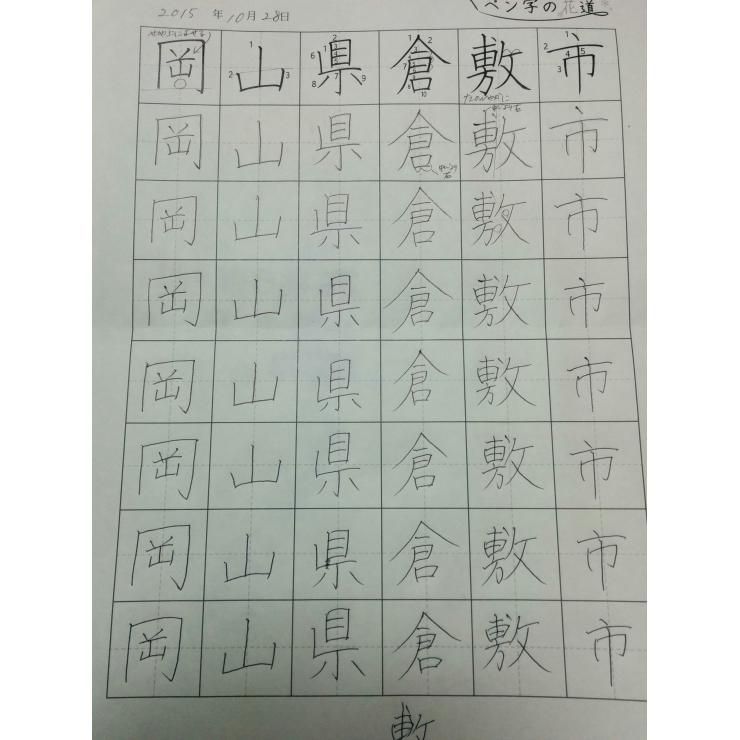 ペン字の花道
2015年10月28日
岡山県倉敷市
岡山県倉敷市
岡山県倉敷市
岡山県倉敷市
岡山県倉敷市
岡山県倉敷市
岡山県倉敷市
岡山県倉敷市
敷